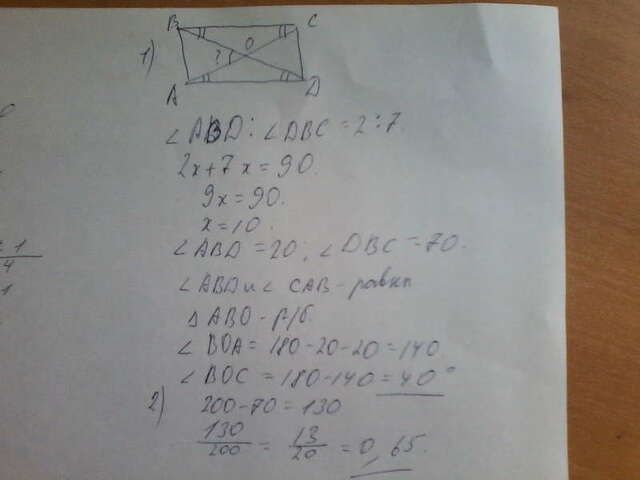 B C
O
1) ?
A D
∠ABD : ∠DBC = 2:7.
2x+7x=90.
9x=90.
x=10.
∠ABD=20; ∠DBC=70.
∠ABD и ∠CAB - равны
△ABO - р/б.
∠BOA = 180-20-20=140
∠BOC = 180-140=40°
2) 200-70=130
130/200 = 13/20 = 0,65.
1
4
1